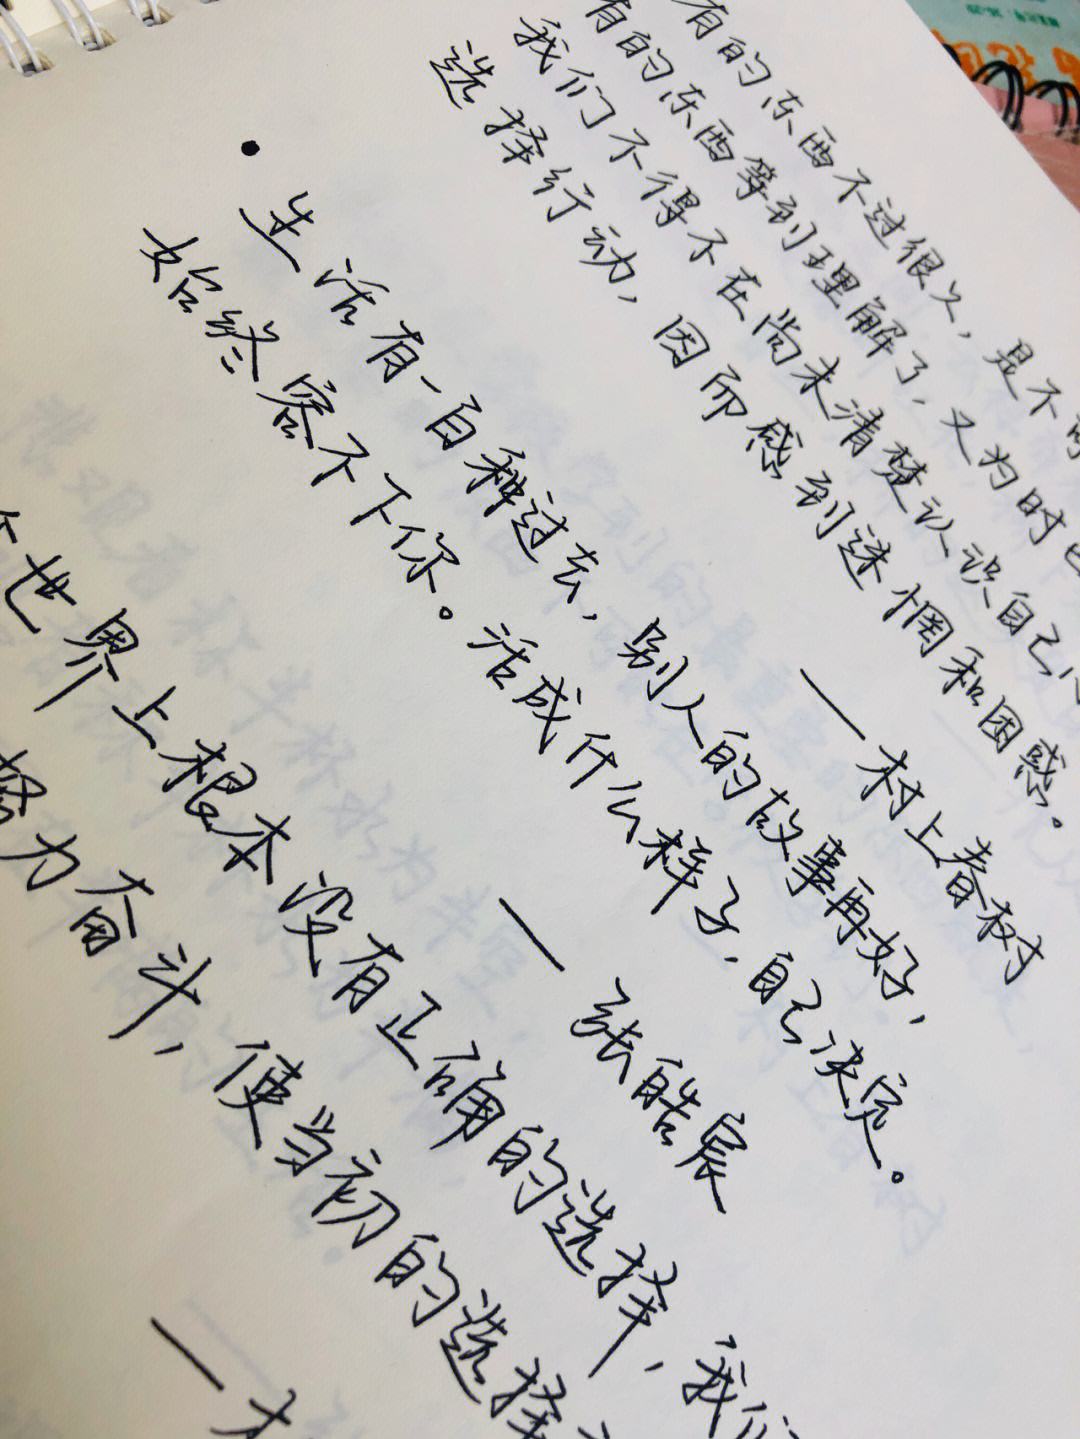 有的东西不过很久，是不可
有的东西等到理解了，又为时已
我们不得不在尚未清楚认识自己心
选择行动，因而感到迷惘和困惑。
——村上春树
生活有一百种过去，别人的故事再好，
始终容不下你。活成什么样子，自己决定。
——张皓宸
个世界上根本没有正确的选择，我们
努力奋斗，使当初的选择
——村